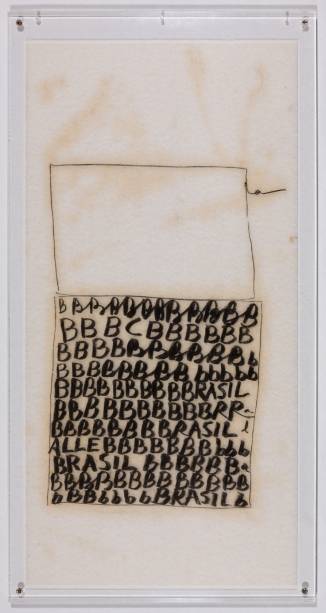 a
BBBBBBBBBBBBB
BB BCBBBBBB
BBBBBBBBBBBb
BBBBBBBBBbbbbb
BBBBBBBBBBRASIL
BBBBBBBBBBRRa
BBBBBBBBRASIL l
ALLEBBBBBBBbbb
BRASIL BBBBBBa
BBBBBBBBBBBBB
bBBbbbbBRASILb